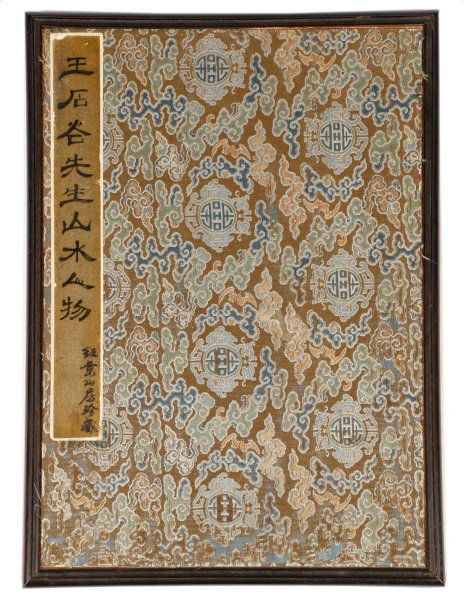 王石谷先生山水人物
紅葉山房珍藏